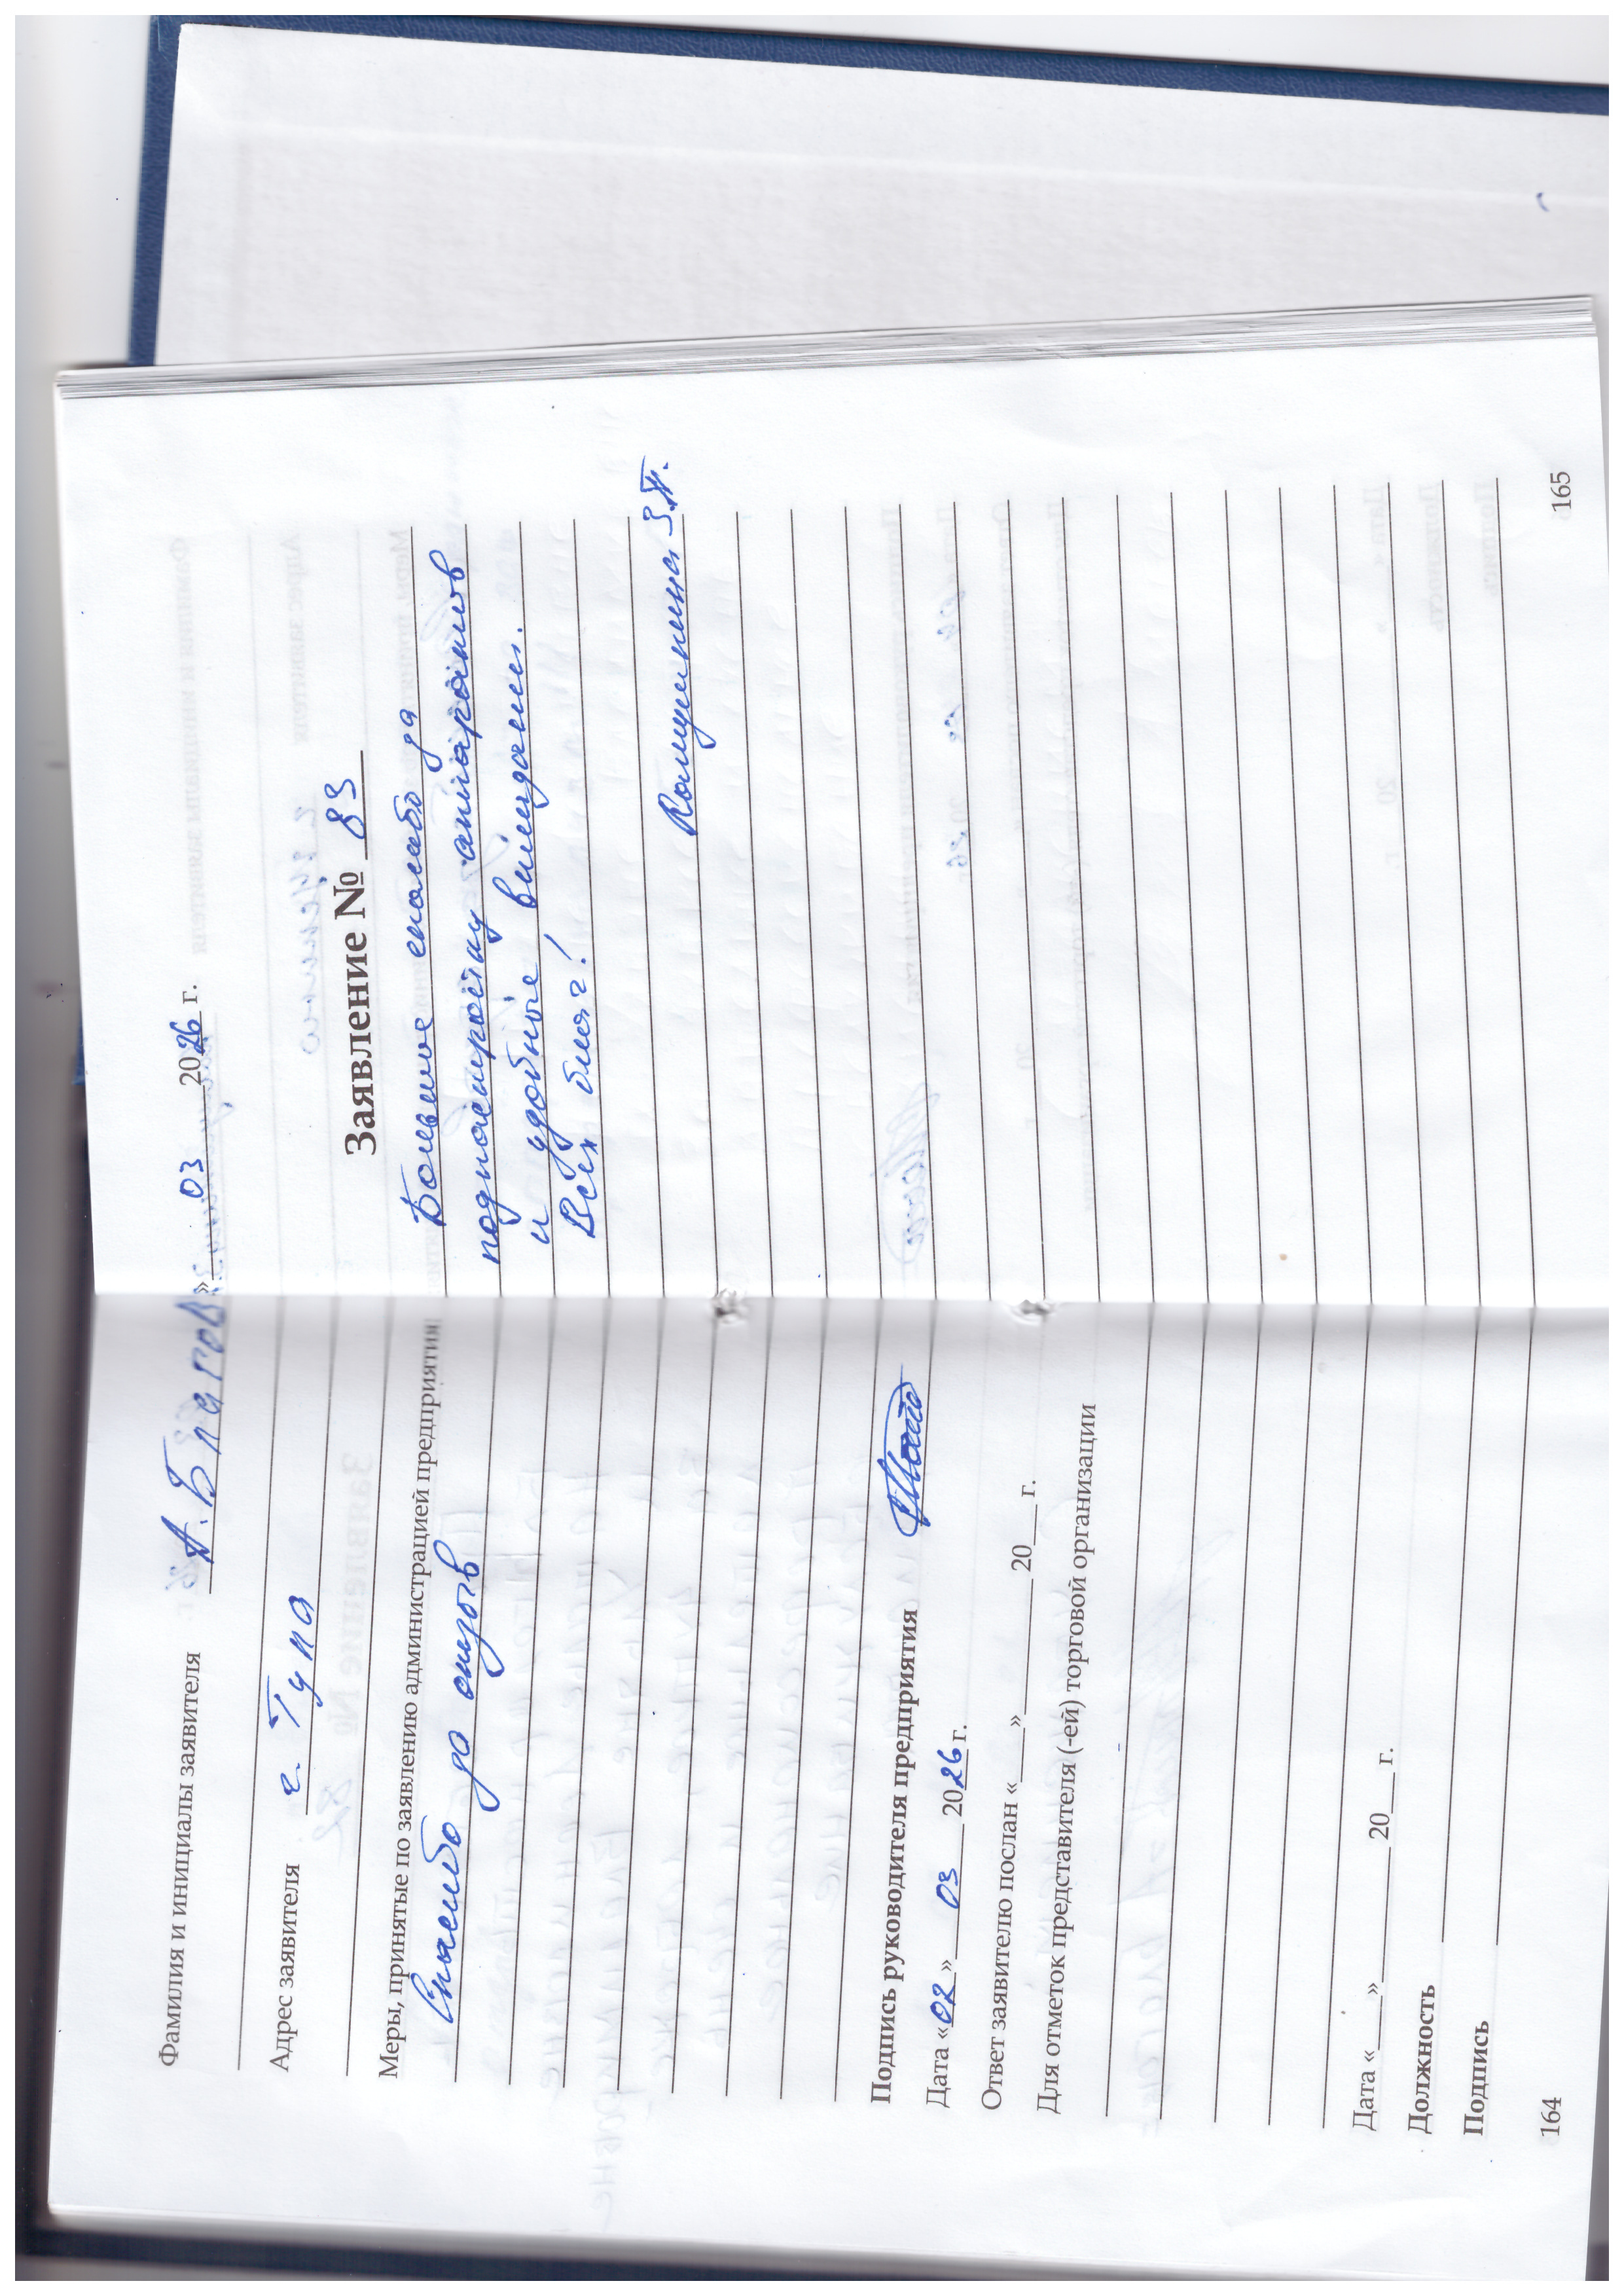 Фамилия и инициалы заявителя
А. Благов
Адрес заявителя г. Тула
Меры, принятые по заявлению администрацией предприятия
Спасибо за отзыв
Подпись руководителя предприятия
Дата «02» 03 2026 г.
Ответ заявителю послан «___»________ 20___ г.
Для отметок представителя (-ей) торговой организации
Дата «___»________ 20___ г.
Должность
Подпись
164
» 03 2026 г.
Заявление № 83
Большое спасибо за
аншрагов
и удобные
Всех благ!
З.П.
165